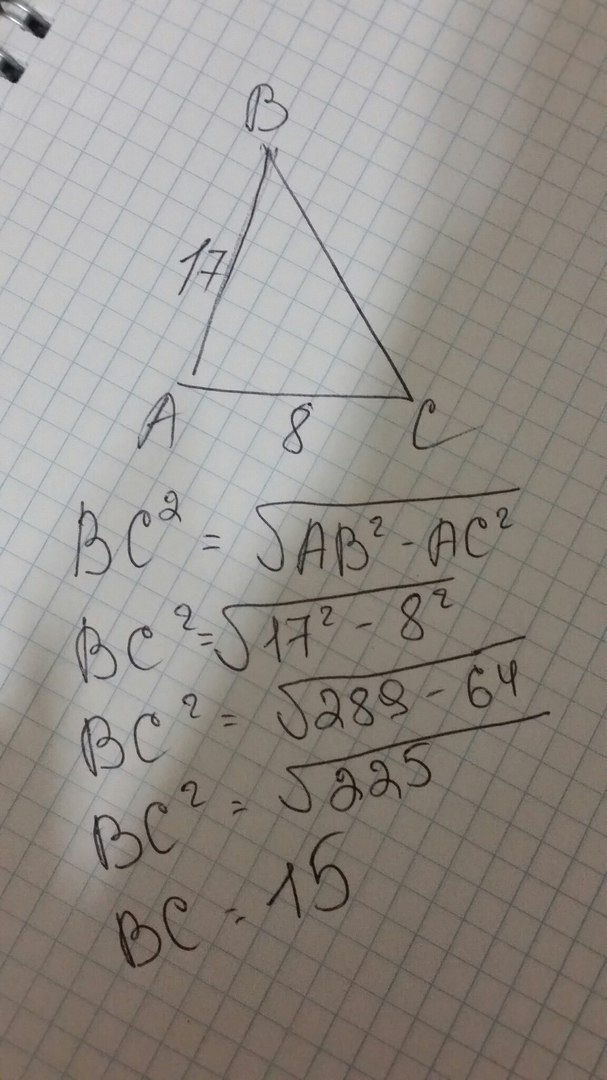 B
17
A
8
C
BC² = √AB² - AC²
BC² = √17² - 8²
BC² = √289 - 64
BC² = √225
BC = 15